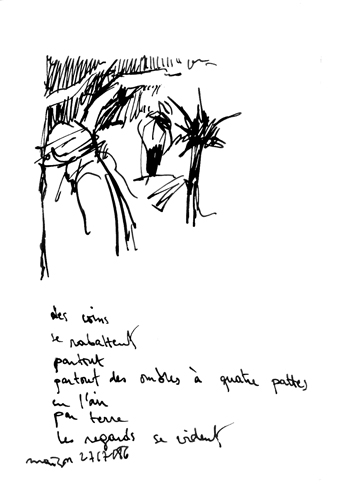 des coins
se rabattent
partout
partout des ombres à quatre pattes
en l'air
par terre
les regards se vident
27/7/86